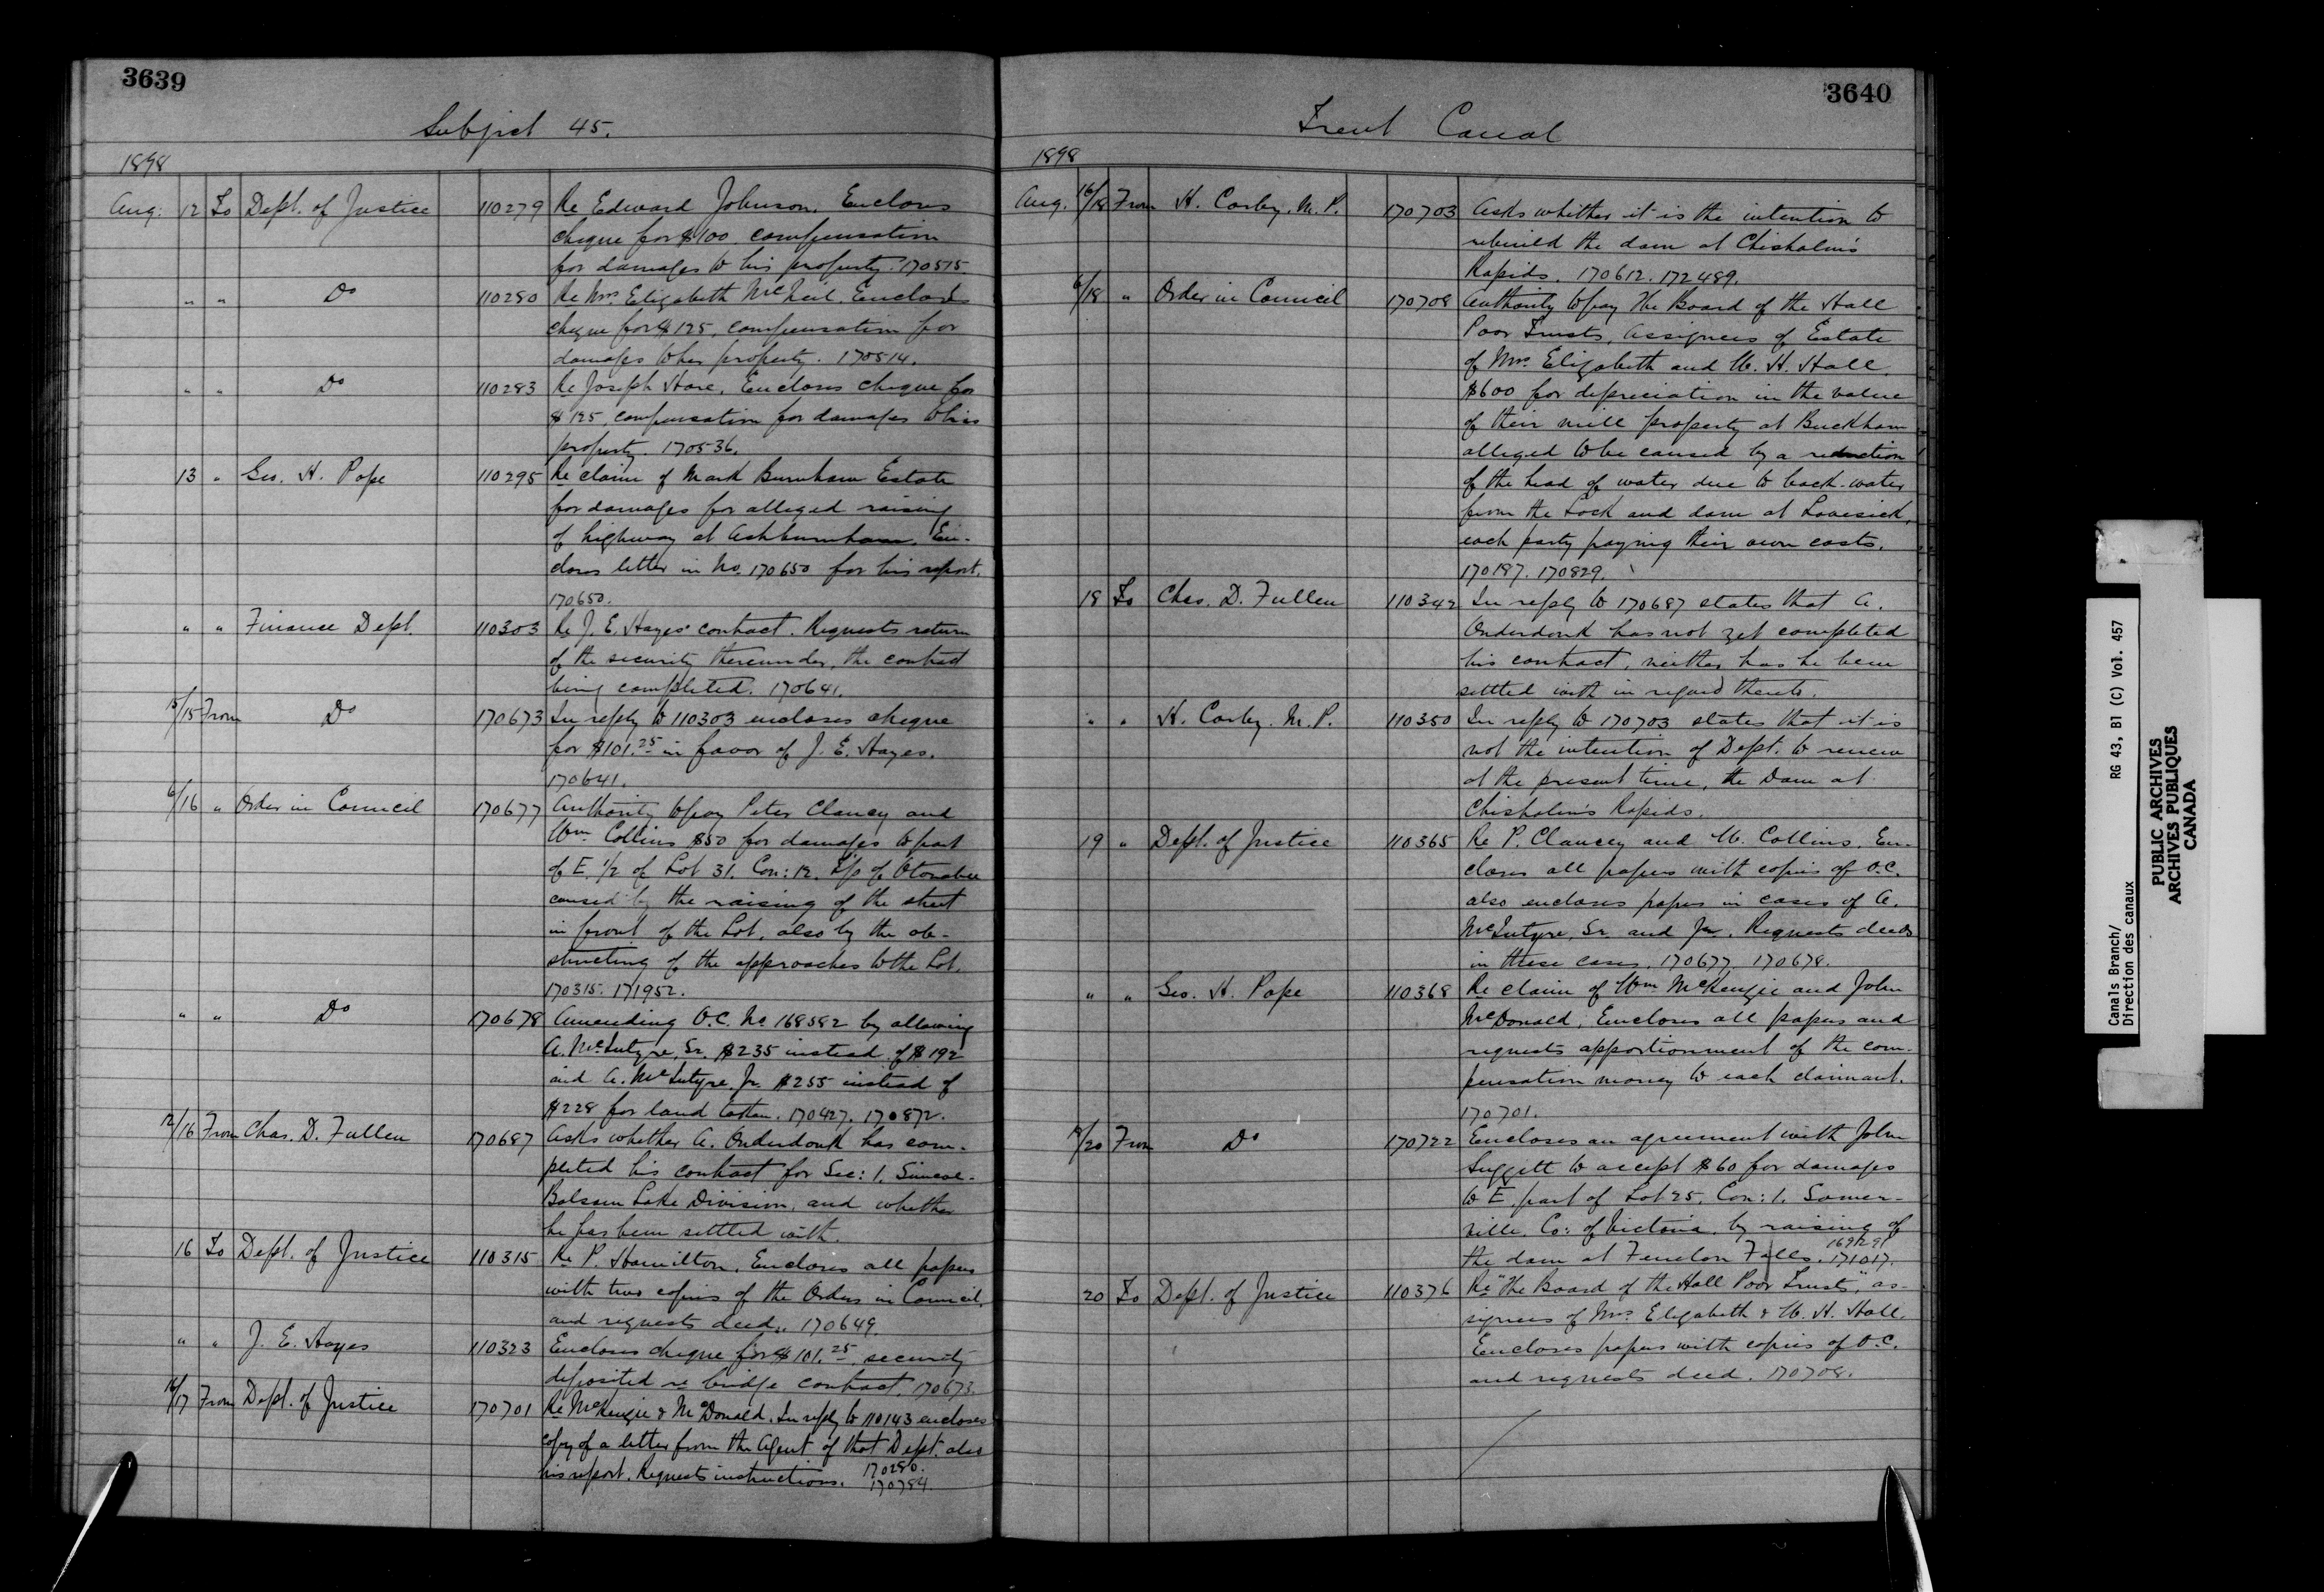 3639
Subject 45.
1898
Aug: 12 To Dept. of Justice 110279 Re Edward Johnson. Encloses
cheque for $100. compensation
for damages to his property. 170515.
" " Do 110280 Re Mrs Elizabeth McNeil. Encloses
cheque for $125, compensation for
damages to her property. 170514.
" " Do 110283 Re Joseph Hore. Encloses cheque for
$125, compensation for damages to his
property. 170536.
13 " Geo. H. Pope 110295 Re claim of Mark Burnham Estate
for damages for alleged raising
of highway at Ashburnham. En-
closes letter in No. 170650 for his report.
170650.
" " Finance Dept. 110303 Re J. E. Hayes' contract. Requests return
of the security thereunder, the contract
being completed. 170641.
15/15 From Do 170673 In reply to 110303 encloses cheque
for $101.25 in favor of J. E. Hayes.
170641.
6/16 " Order in Council 170677 Authority to pay Peter Clancy and
Wm Collins $50 for damages to part
of E. 1/2 of Lot 31. Con: 12. T/p of Otonabee
caused by the raising of the street
in front of the Lot, also by the ob-
structing of the approaches to the Lot.
170315. 171952.
" " Do 170678 Amending O.C. No 168582 by allowing
A. McIntyre, Sr. $235 instead of $192
and A. McIntyre, Jr. $255 instead of
$228 for land taken. 170427. 170872.
12/16 From Chas. D. Fullen 170687 Asks whether A. Onderdonk has com-
pleted his contract for Sec: 1. Simcoe-
Balsam Lake Division, and whether
he has been settled with.
16 To Dept. of Justice 110315 Re P. Hamilton. Encloses all papers
with two copies of the Orders in Council,
and requests deed. 170649.
" " J. E. Hayes 110323 Encloses cheque for $101.25, security
deposited re bridge contract. 170673.
16/17 From Dept. of Justice 170701 Re McKenzie & McDonald. In reply to 110143 encloses
copy of a letter from the Agent of that Dept. also
his report. Requests instructions. 170280.
170784.
3640
Trent Canal
1898
Aug. 16/18 From H. Corby. M. P. 170703 Asks whether it is the intention to
rebuild the dam at Chisholm's
Rapids. 170612. 172489.
6/18 " Order in Council 170708 Authority to pay The Board of the Hall
Poor Trusts, Assignees of Estate
of Mrs. Elizabeth and W. H. Hall,
$600 for depreciation in the value
of their mill property at Buckham
alleged to be caused by a reduction
of the head of water due to back-water
from the Lock and dam at Lovesick,
each party paying their own costs.
170187. 170829.
18 To Chas. D. Fullen 110342 In reply to 170687 states that A.
Onderdonk has not yet completed
his contract, neither has he been
settled with in regard thereto.
" " H. Corby. M. P. 110350 In reply to 170703 states that it is
not the intention of Dept. to renew
at the present time, the Dam at
Chisholm's Rapids.
19 " Dept. of Justice 110365 Re P. Clancey and W. Collins. En-
closes all papers with copies of O.C.
also encloses papers in cases of A.
McIntyre, Sr. and Jr. Requests deeds
in these cases. 170677. 170678.
" " Geo. H. Pope 110368 Re claim of Wm McKenzie and John
McDonald, Encloses all papers and
requests apportionment of the com-
pensation money to each claimant.
170701.
/20 From Do 170722 Encloses an agreement with John
Suggitt to accept $60 for damages
to E. part of Lot 25. Con: 1. Somer-
ville, Co: of Victoria, by raising of
the dam at Fenelon Falls. 169129. 171017.
20 To Dept. of Justice 110376 Re "The Board of the Hall Poor Trusts", as-
signees of Mrs Elizabeth & W. H. Hall
Encloses papers with copies of O.C.
and requests deed. 170708.
Canals Branch/ RG 43, B1 (C) Vol. 457
Direction des canaux
PUBLIC ARCHIVES
ARCHIVES PUBLIQUES
CANADA